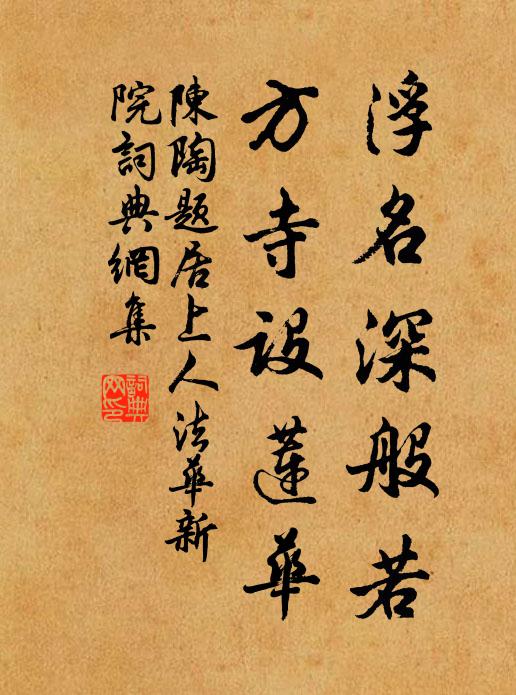 浮名深般若
方寺設蓮華
陳陶題居上人法華新
院詞典網集
詞典網印